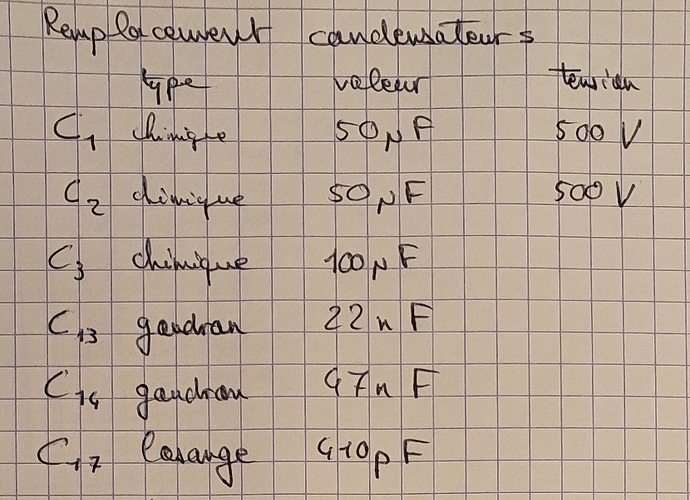 Remplacement condensateurs
type valeur tension
C1 chimique 50 µF 500 V
C2 chimique 50 µF 500 V
C3 chimique 100 µF
C13 goudron 22 nF
C14 goudron 47 nF
C17 losange pF